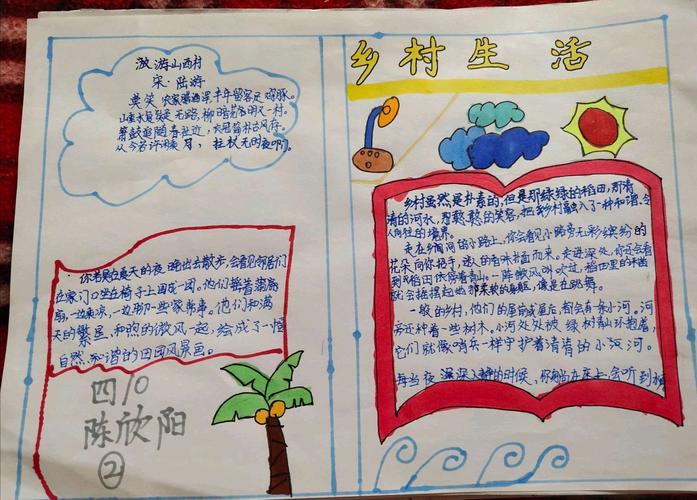 乡村生活
游山西村
宋·陆游
莫笑农家腊酒浑丰年留客足鸡豚。
山重水复疑无路,柳暗花明又一村。
箫鼓追随春社近,衣冠简朴古风存。
从今若许闲乘月,拄杖无时夜叩门。
你若是在夏天的夜晚出去散步,会看见邻居们
在家门口坐在椅子上围成一团。他们拿着蒲扇
扇,一边乘凉,一边聊一些家常事。他们和满
天的繁星,和煦的微风一起,绘成了一幅
自然、和谐的田园风景画。
四10
陈欣阳
②
乡村虽然是朴素的,但是那绿绿的稻田,清
清的河水,憨憨的笑容,把乡村融入了一种和谐、令
人向往的境界。
走在乡间的小路上,你会看见小路旁五彩缤纷的
花朵向你招手,迷人的香味扑面而来。走进深处,你还会看
到稻田依偎着青山。一阵微风吹过,稻田里的
就会摇摆起他那柔软的身躯,像是在跳舞。
一般的乡村,他们的屋前或屋后,都会有一条小河。河
旁还种着一些树木。小河处处被绿树青山环抱着,
它们就像哨兵一样守护着清清的小河。
每当夜深人静的时候,你躺在床上,会听到